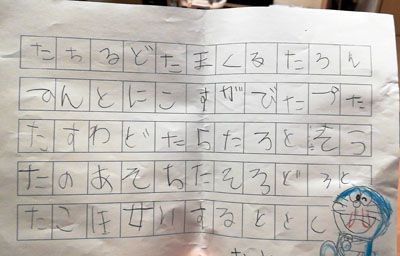 たちるどたまくるたろん
でんとにこすがびたづた
たすわどたらたろとぞう
たのあそちたそろどろと
たこほせいするととし